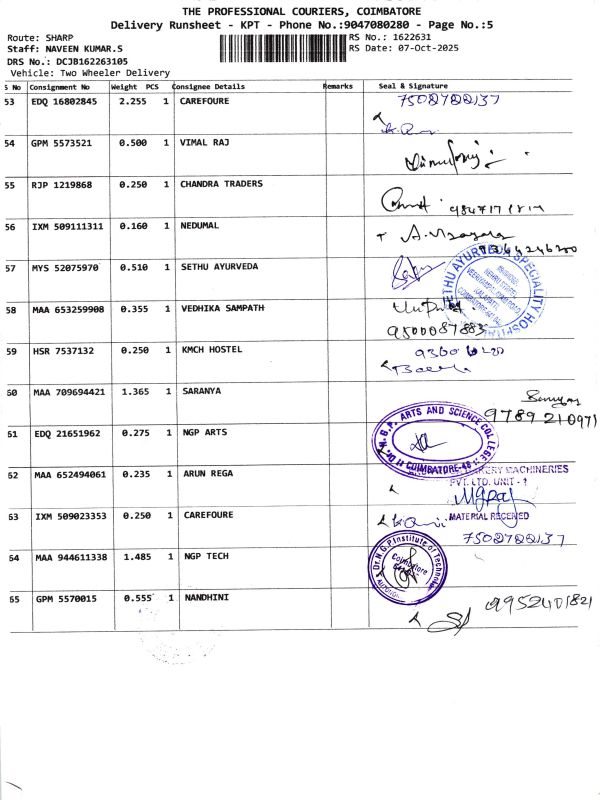 THE PROFESSIONAL COURIERS, COIMBATORE
Delivery Runsheet - KPT - Phone No.:9047080280 - Page No.:5
Route: SHARP
RS No.: 1622631
Staff: NAVEEN KUMAR.S
RS Date: 07-Oct-2025
DRS No.: DCJB162263105
Vehicle: Two Wheeler Delivery
S No Consignment No Weight PCS Consignee Details Remarks Seal & Signature
53 EDQ 16802845 2.255 1 CAREFOURE
54 GPM 5573521 0.500 1 VIMAL RAJ
55 RJP 1219868 0.250 1 CHANDRA TRADERS
56 IXM 509111311 0.160 1 NEDUMAL
57 MYS 52075970 0.510 1 SETHU AYURVEDA
SETHU AYURVEDA SPECIALITY HOSPITAL
58 MAA 653259908 0.355 1 VEDHIKA SAMPATH
9500087883
59 HSR 7537132 0.250 1 KMCH HOSTEL
60 MAA 709694421 1.365 1 SARANYA
9789210971
61 EDQ 21651962 0.275 1 NGP ARTS
Dr. N.G.P. ARTS AND SCIENCE COLLEGE
COIMBATORE-48
62 MAA 652494061 0.235 1 ARUN REGA
MACHINERIES
PVT. LTD. UNIT - 1
63 IXM 509023353 0.250 1 CAREFOURE
MATERIAL RECEIVED
64 MAA 944611338 1.485 1 NGP TECH
Dr. N.G.P Institute of Technology
Coimbatore
65 GPM 5570015 0.555 1 NANDHINI